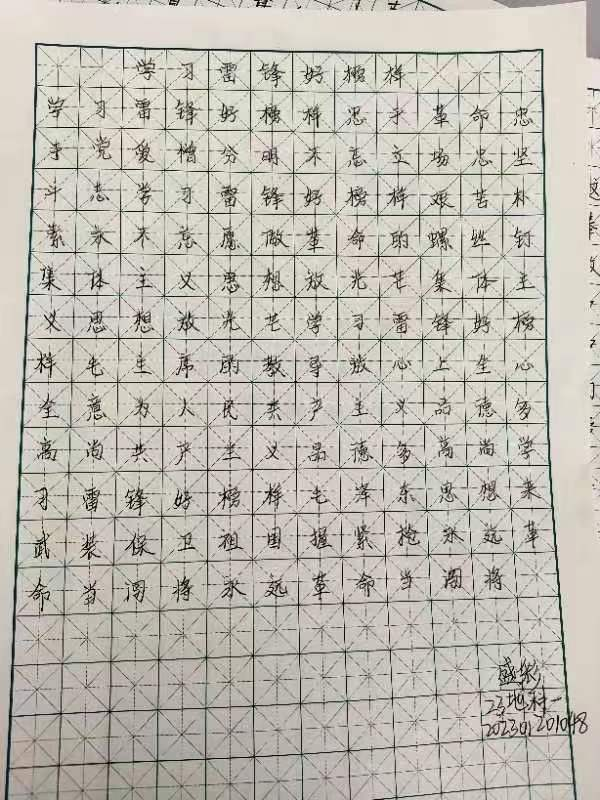 学习雷锋好榜样
学习雷锋好榜样忠于革命忠
于党爱憎分明不忘立场忠坚
斗志学习雷锋好榜样艰苦朴
素永不忘愿做革命的螺丝钉
集体主义思想放光芒集体主
义思想放光芒学习雷锋好榜
样毛主席的教导放心上全心
全意为人民共产主义品德多
高尚共产主义品德多高尚学
习雷锋好榜样毛泽东思想来
武装保卫祖国握紧枪永远革
命当闯将永远革命当闯将
23地科一
202301201048